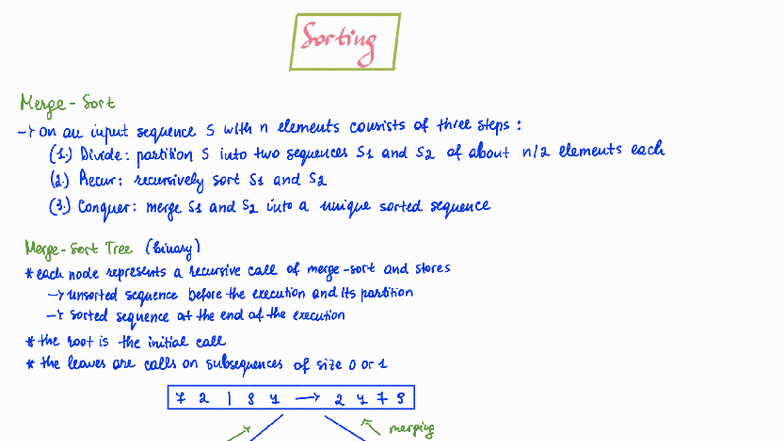 Sorting
Merge-Sort
→ on an input sequence S with n elements consists of three steps:
(1.) Divide: partition S into two sequences S1 and S2 of about n/2 elements each
(2.) Recur: recursively sort S1 and S2
(3.) Conquer: merge S1 and S2 into a unique sorted sequence
Merge-Sort Tree (binary)
* each node represents a recursive call of merge-sort and stores
→ unsorted sequence before the execution and its partition
→ sorted sequence at the end of the execution
* the root is the initial call
* the leaves are calls on subsequences of size 0 or 1
7 2 | 9 4 → 2 4 7 9
merging